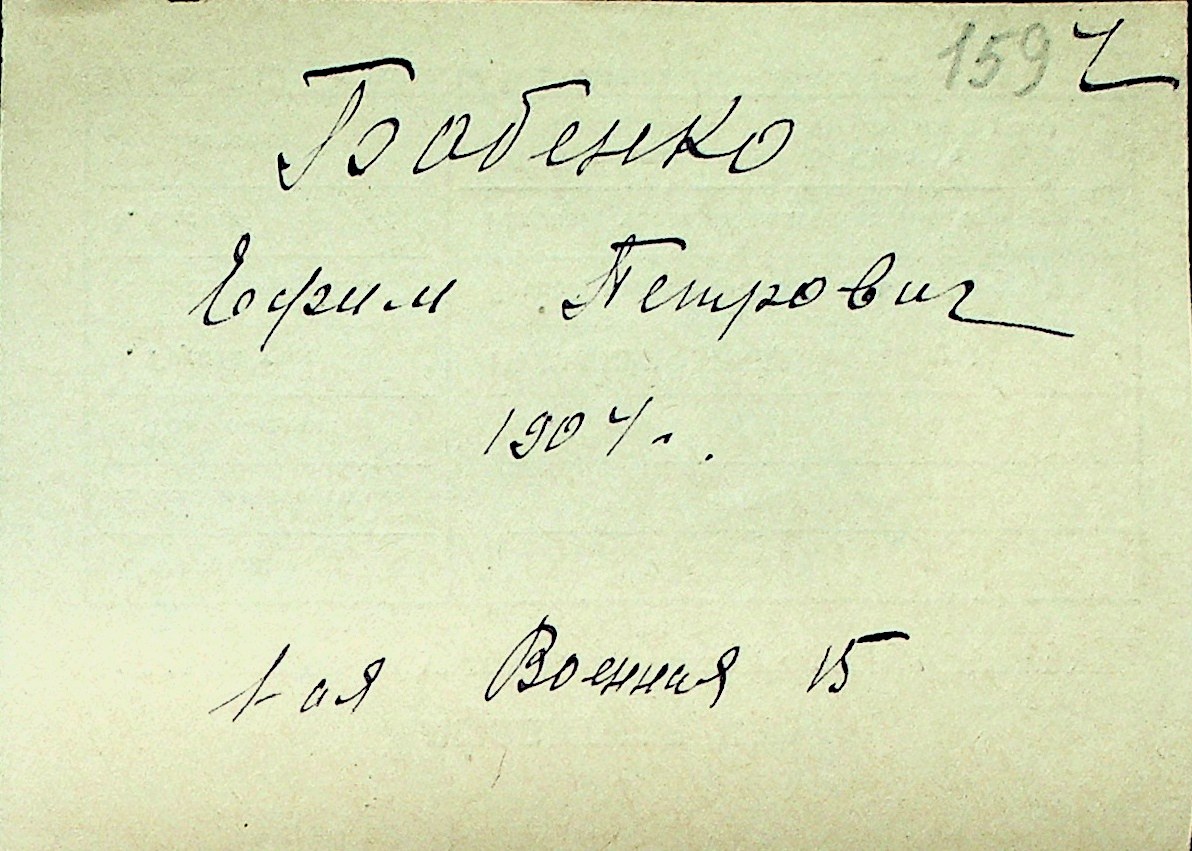 159 Ч
Бабенко
Ефим Петрович
1904 г.
1-ая Военная 15